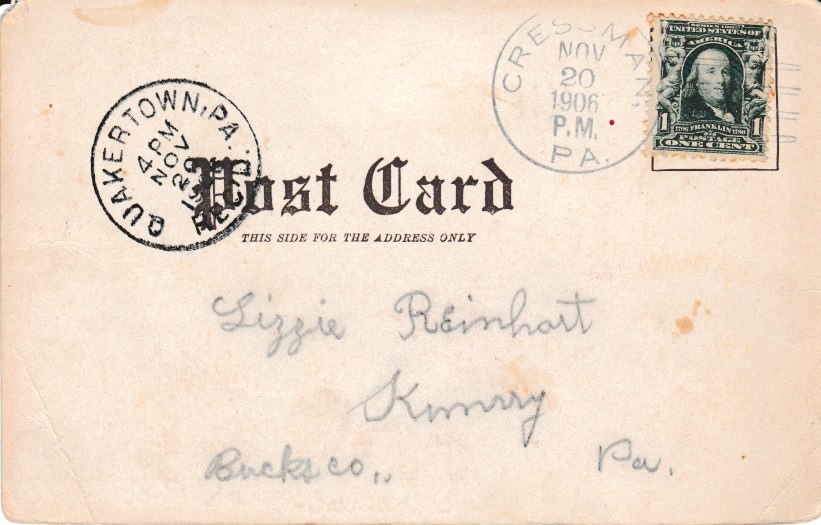 CRESSMAN,
NOV
20
1906
P.M.
PA.
SERIES 1902
UNITED STATES OF
AMERICA
1 1
1706 FRANKLIN 1790
POSTAGE
ONE CENT
QUAKERTOWN, PA.
4 PM
NOV
20
REC'D
Post Card
THIS SIDE FOR THE ADDRESS ONLY
Lizzie Reinhart
Bucks co., Pa.